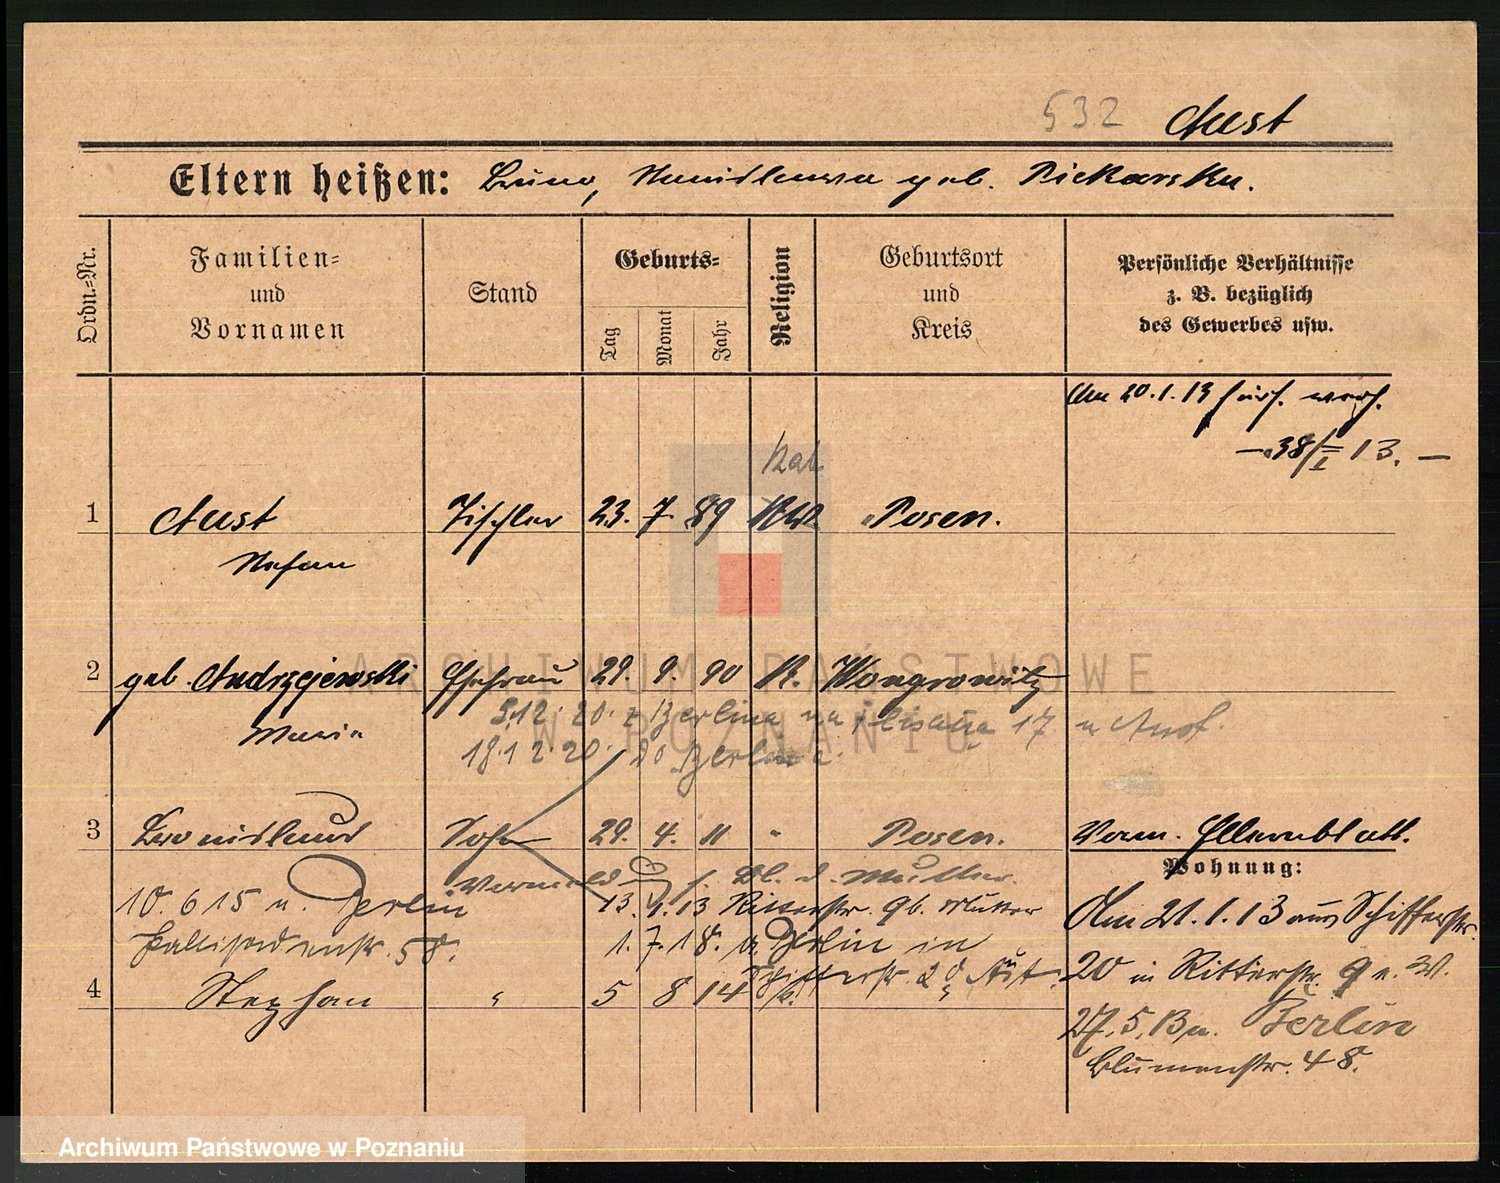 532 Aust
Eltern heißen: Bruno, Stanislawa geb. Piekarska.
Ordn.-Nr.
Familien-
und
Vornamen
Stand
Geburts-
Tag
Monat
Jahr
Religion
Geburtsort
und
Kreis
Persönliche Verhältnisse
z. B. bezüglich
des Gewerbes usw.
Am 20.1.13
13. —
kat.
1 Aust Tischler 23. 7. 89 Posen.
Stefan
2 geb. Andrzejewski Ehefrau 29. 9. 90 K. Wongrowitz
Maria
5.12.20. z Berlina na 17 u Aust.
18.12.20. do Berlina.
3 Bronislaus Sohn 29. 4. 11 " Posen. Vorm. Elternblatt.
Wohnung:
f. Bl. d. Mutter.
10. 6 15 n. Berlin 13. 1. 13 Ritterstr. 9b. Mutter
Pallisadenstr. 58. 1. 7. 18. a. Berlin in
Am 21. 1. 13 aus Schifferstr.
20 in Ritterstr. 9
4 Stephan " 5 8 14 Schifferstr. 20 Aust
27. 5. 13 n. Berlin
Blumenstr. 48.
ARCHIWUM PAŃSTWOWE
W POZNANIU
Archiwum Państwowe w Poznaniu